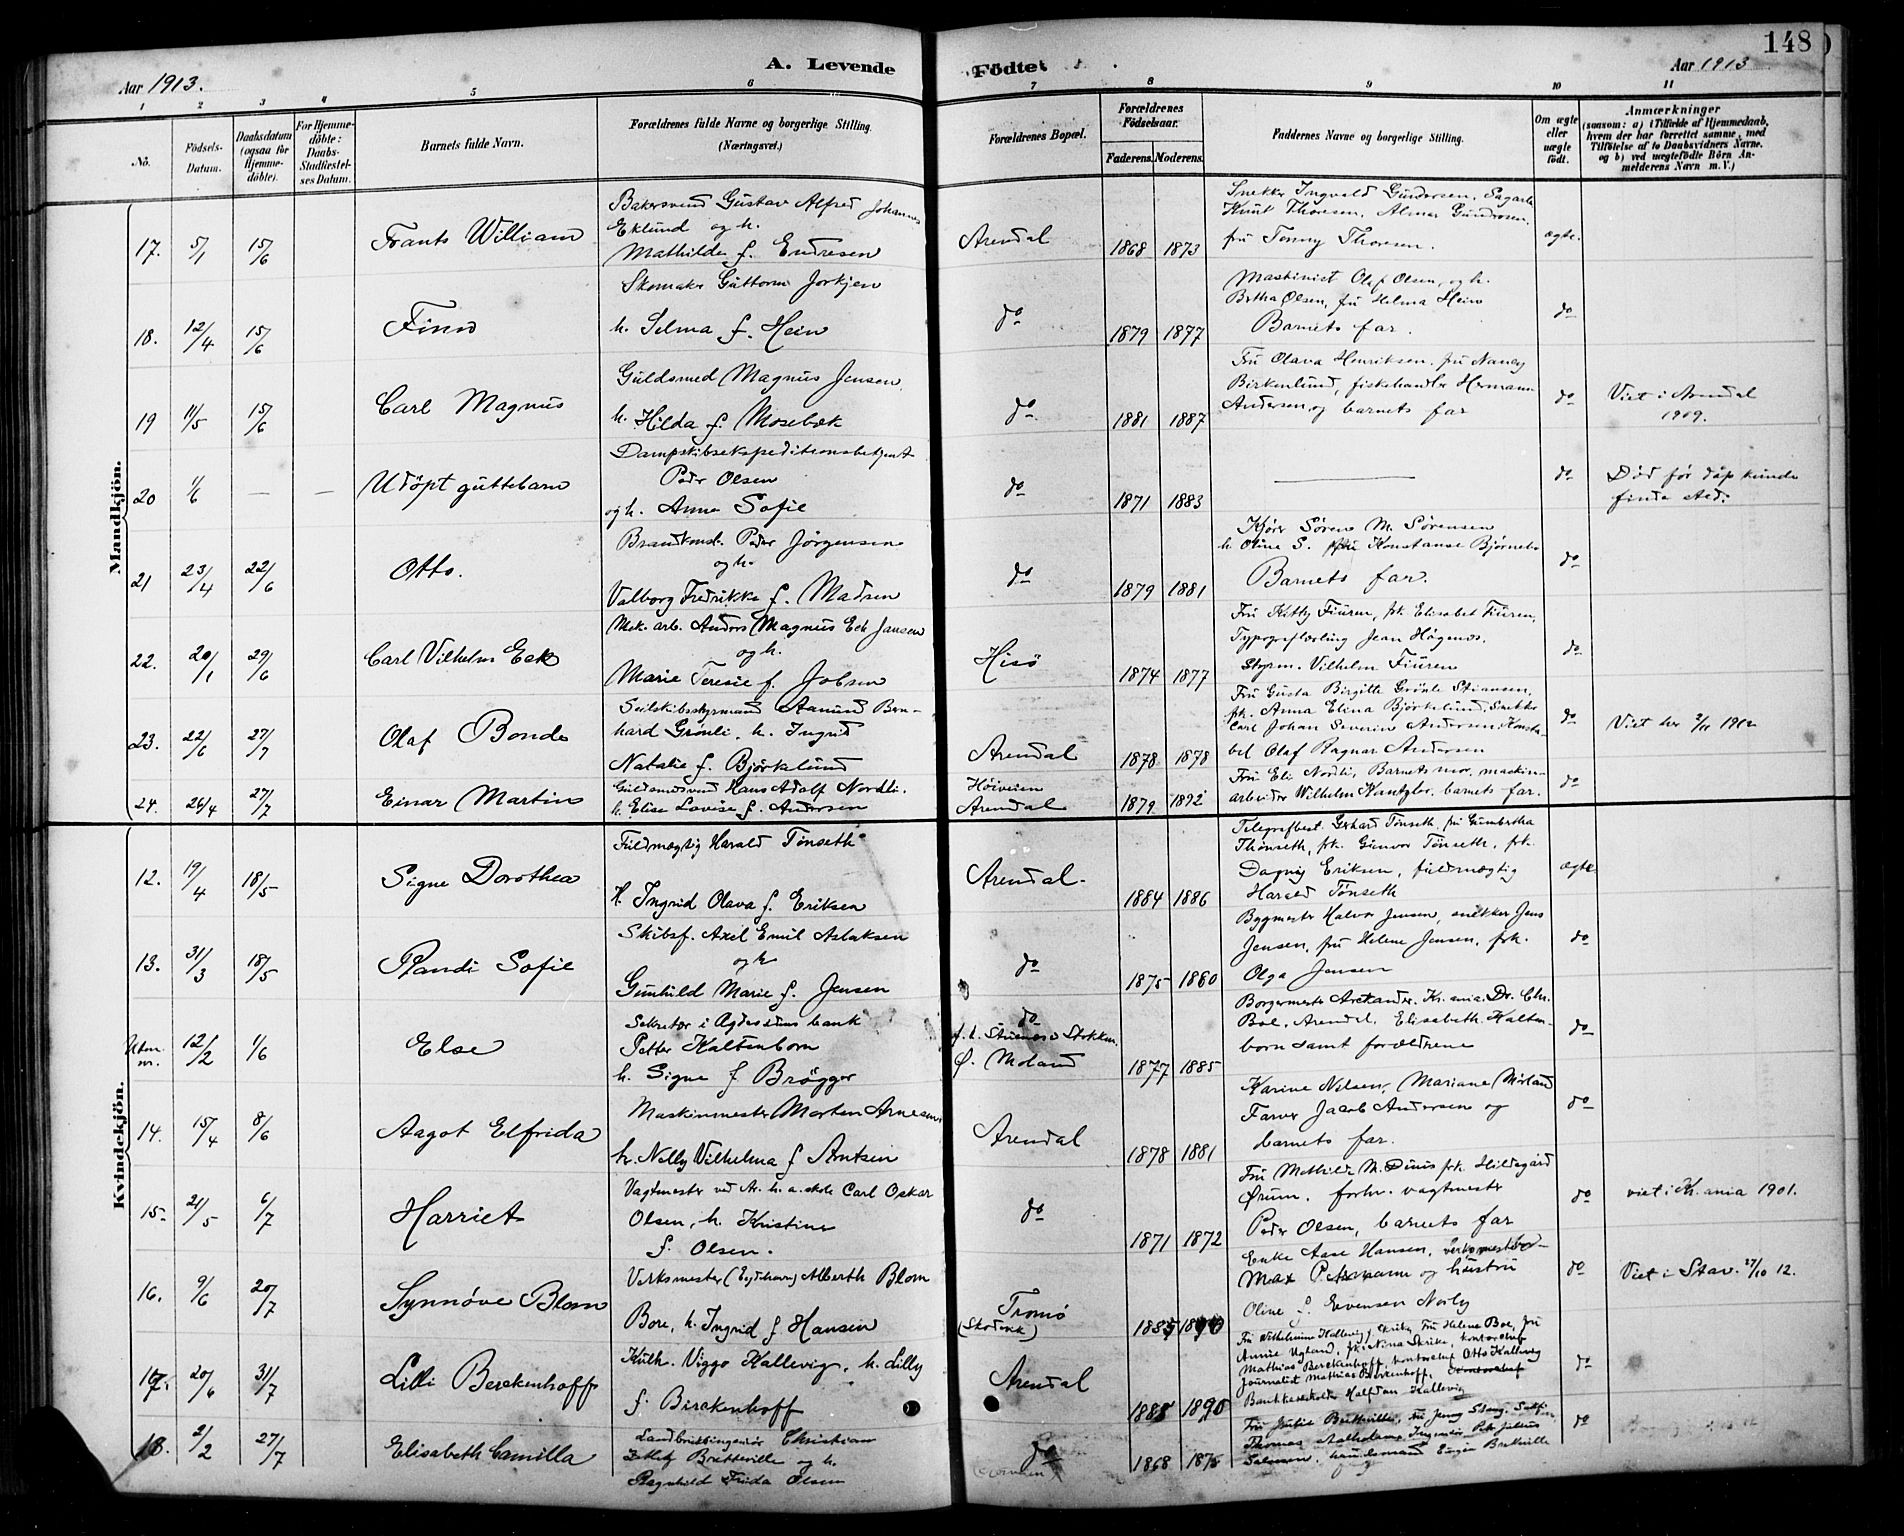 148
Aar 1913.
A. Levende
Födte.
Aar 1913
1 2 3 4 5 6 7 8 9 10 11
No.
Födsels-
Datum.
Daabsdatum
(ogsaa för
Hjemme-
döbte).
For Hjemme-
döbte:
Daabs-
Stadfæstel-
ses Datum.
Barnets fulde Navn.
Forældrenes fulde Navne og borgerlige Stilling.
(Næringsvei.)
Forældrenes Bopæl.
Forældrenes
Födselsaar.
Faderens. Moderens.
Faddernes Navne og borgerlige Stilling.
Om ægte
eller
uægte
födt.
Anmærkninger
(saasom: a) i Tilfælde af Hjemmedaab,
hvem der har forrettet samme, med
Tilföielse af to Daabsvidners Navne.
og b) ved uægtefödte Börn An-
melderens Navn m. V.)
Mandkjön.
17. 5/1 15/6 Frants William
Bakersvend Gustav Alfred Johannes
Eklund og h.
Mathilde f. Endresen
Arendal 1868 1873
Snekker Ingvald Gundersen,
Knut Thoresen, Almar Gundersen,
fru Tonny Thoresen.
ægte.
18. 12/4 15/6 Finn
Skomaker Guttorm Jorkjen
h. Selma f. Hein
do 1879 1877
Maskinist Olaf Olsen, og h.
Bertha Olsen, fru Helma Hein
Barnets far.
do
19 11/5 15/6 Carl Magnus
Guldsmed Magnus Jensen,
h. Hilda f. Mosebæk
do 1881 1887
Fru Olava Henriksen, fru Nancy
Birkenlund, fiskehandler Hermann
Andersen, og barnets far
do
Viet i Arendal
1909.
20 1/6 — — Udöpt guttebarn
Dampskibsekspeditionsbetjent
Peder Olsen
og h. Anna Sofie
do 1871 1883
do
Död før dåp kunde
finde sted.
21 23/4 22/6 Otto.
Brandkonst. Peder Jörgensen
og h.
Valborg Fredrikke f. Madsen
do 1879 1881
Kjører Sørens M. Sørensen
h. Oline S. Konstanse Bjørnebo
Barnets far.
do
22. 20/1 29/6 Carl Vilhelm Eek
Mek. arb. Anders Magnus Eek Jansen
og h.
Marie Teresie f. Jobsen
Hisö 1874 1877
Fru Kitty Fiuren, frk. Elisabet Fiuren,
Typograflærling Jean Högenes,
Styrm. Vilhelm Fiuren
do
23. 22/6 27/7 Olaf Bonde
Seilskibsstyrmand Aanund Bern-
hard Grönli, h. Ingrid
Natalie f. Björklund
Arendal 1878 1878
Fru Gusta Birgitte Grönle Stiansen,
frk. Anna Elina Björkelund, Snekker
Carl Johan Severin Andersen, Konsta-
bel Olaf Ragnar Andersen
do
Viet her 2/11 1912
24. 26/4 27/7 Einar Martin
Guldsmedsvend Hans Adolf Nordli.
h. Elise Lovise f. Andersen
Höiveien
Arendal 1879 1892
Fru Eli Nordli, Barnets mor, maskin-
arbeider Wilhelm Kantzler, barnets far.
do
Kvindekjön.
12. 19/4 18/5 Signe Dorothea
Fuldmægtig Harald Tönseth
h. Ingrid Olava f. Eriksen
Arendal. 1884 1886
Telegrafbest. Gerhard Tönseth, fru Gumbertha
Thönseth, frk. Gunvor Tönseth, frk.
Dagny Eriksen, fuldmægtig
Harald Tönseth
ægte
13. 31/3 18/5 Randi Sofie
Skibsf. Axel Emil Aslaksen
og h
Gunhild Marie f. Jensen
do 1875 1880
Bygmester Halvor Jensen, snekker Jens
Jensen, fru Helene Jensen, frk.
Olga Jensen
do
Utm.
nr. 12/2 1/6 Else
Sekretær i Agdesidens bank
Petter Kaltenborn
h. Signe f Brögger
do
f. t. Stuenes i Stokken
Ö. Moland 1877 1885
Borgermester Arctander, Kr.ania, Dr. Chr.
Boe, Arendal, Elisabeth Kalten-
born samt forældrene
do
14. 15/4 8/6 Aagot Elfrida
Maskinmester Morten Arnesen
h. Nelly Vilhelma f Arntsen
Arendal 1878 1881
Karine Nilsen, Mariane Mörland
Farver Jacob Andersen og
barnets far.
do
15 21/5 6/7 Harriet
Vagtmester ved Ar. h. a. skole Carl Oskar
Olsen, h. Kristine
f. Olsen.
do 1871 1872
Fru Mathilde M. Dinis frk. Hildegard
Ørum, forhv. vagtmester
Peder Olsen, barnets far
do
viet i Kr.ania 1901.
16. 9/6 20/7 Synnöve Blom
Verksmester (Eydehavn) Alberth Blom
Bore, h. Ingrid f Hansen
Tromö
(Skodvik) 1885 1890
Enke Aase Hansen, verksmester
Max Petermann og hustru
Oline f. Evensen Norby
do
Viet i Stav. 27/10 12.
17. 20/6 31/7 Lilli Berckenhoff
Kuth. Viggo Kallevig, h. Lilly
f. Birckenhoff
Arendal 1885 1890
Fru Wilhelmine Kallevig f. Skrike, Fru Helene Boe, fru
Annie Ugland, frk. Nina Skrike, kontorchef
Mathias Berckenhoff, kontorchef Otto Kallevig
Journalist Mathias Birckenhoff,
Bankkasserer Halfdan Kallevig
do
18. 2/2 27/7 Elisabeth Camilla
Landbruksingeniör Christian
Detlef Bretteville og h.
Ragnhild Frida Olsen
do 1868 1875
Fru Julie Bretteville, fru Jenny Stang,
Thomas Ingeniör
Salvesen,
do